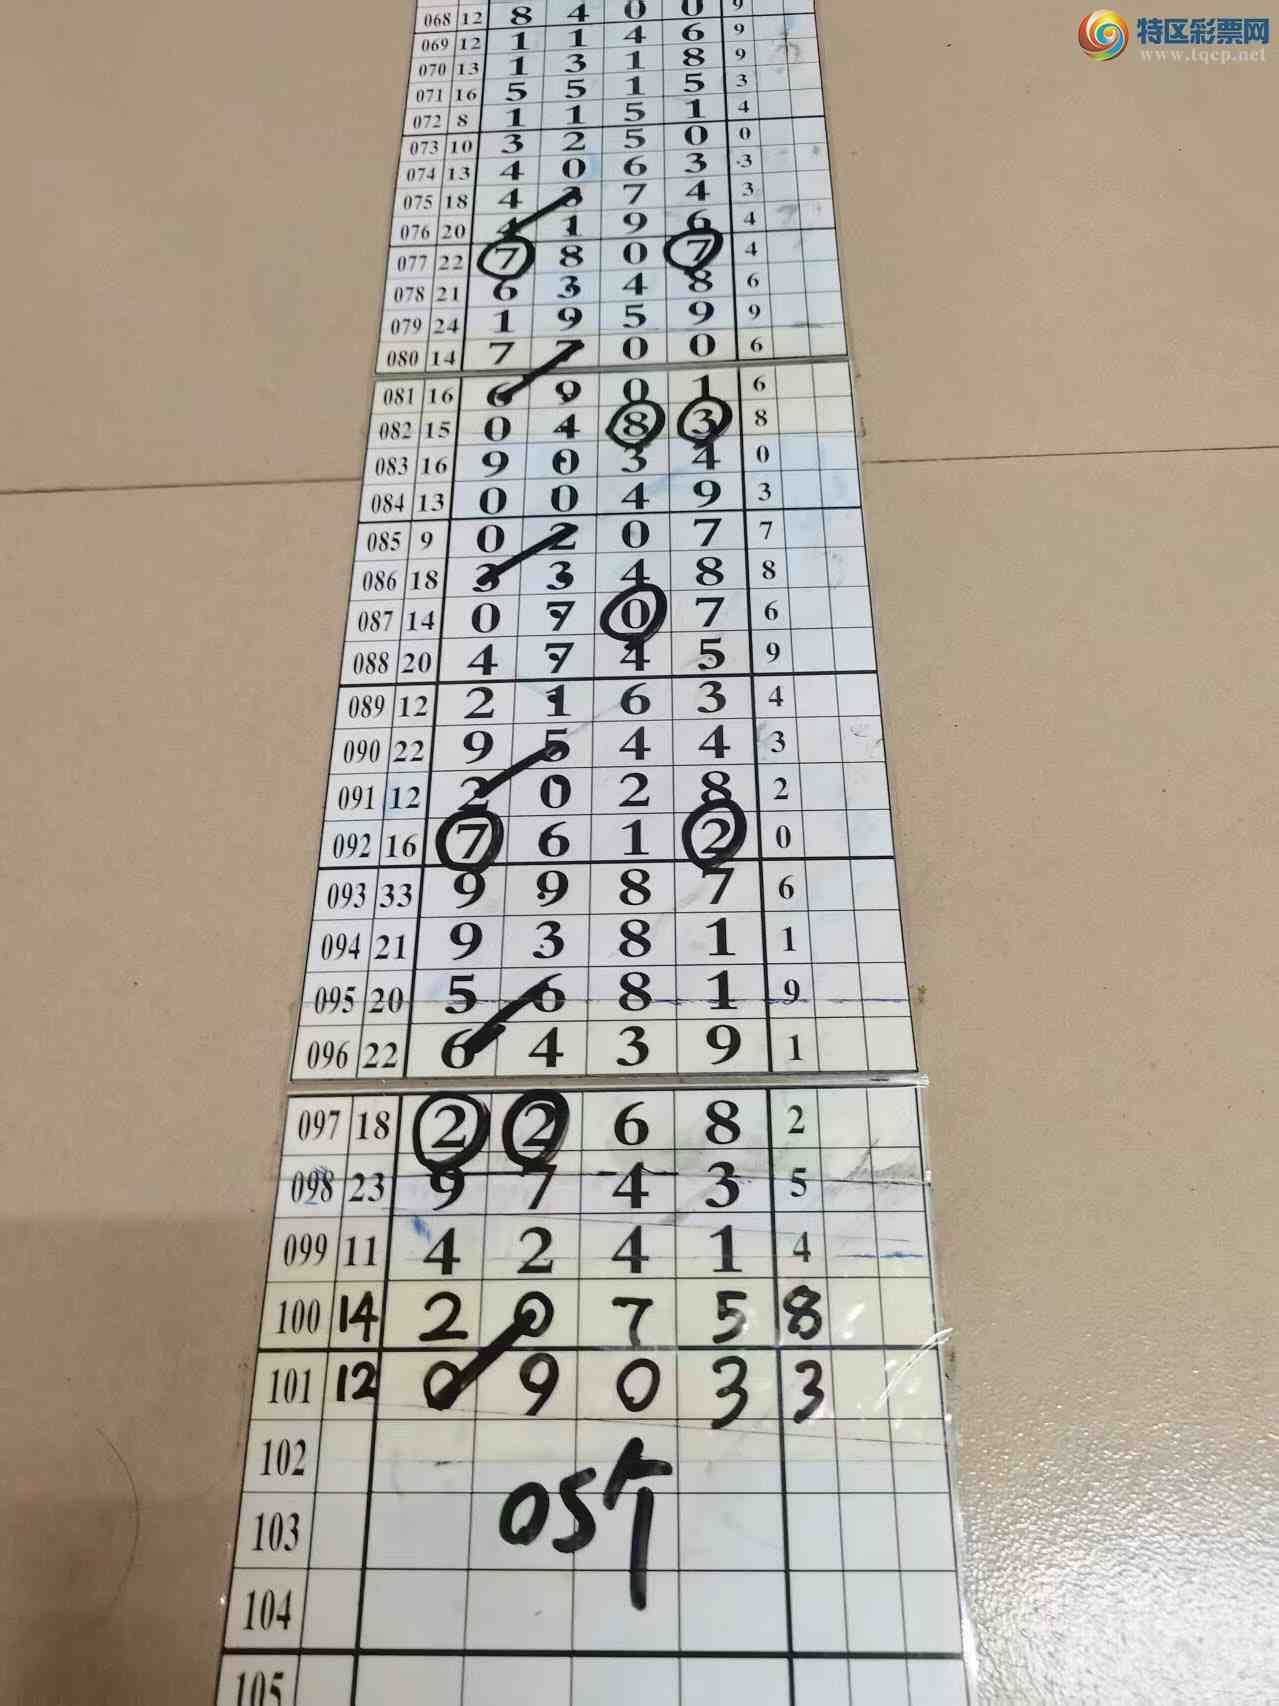 特区彩票网
www.tqcp.net
068 12 8 4 0 0 9
069 12 1 1 4 6 9
070 13 1 3 1 8 9
071 16 5 5 1 5 3
072 8 1 1 5 1 4
073 10 3 2 5 0 0
074 13 4 0 6 3 3
075 18 4 3 7 4 3
076 20 4 1 9 6 4
077 22 7 8 0 7 4
078 21 6 3 4 8 6
079 24 1 9 5 9 9
080 14 7 7 0 0 6
081 16 6 9 0 1 6
082 15 0 4 8 3 8
083 16 9 0 3 4 0
084 13 0 0 4 9 3
085 9 0 2 0 7 7
086 18 3 3 4 8 8
087 14 0 7 0 7 6
088 20 4 7 4 5 9
089 12 2 1 6 3 4
090 22 9 5 4 4 3
091 12 2 0 2 8 2
092 16 7 6 1 2 0
093 33 9 9 8 7 6
094 21 9 3 8 1 1
095 20 5 6 8 1 9
096 22 6 4 3 9 1
097 18 2 2 6 8 2
098 23 9 7 4 3 5
099 11 4 2 4 1 4
100 14 2 0 7 5 8
101 12 0 9 0 3 3
102
103 05个
104
105